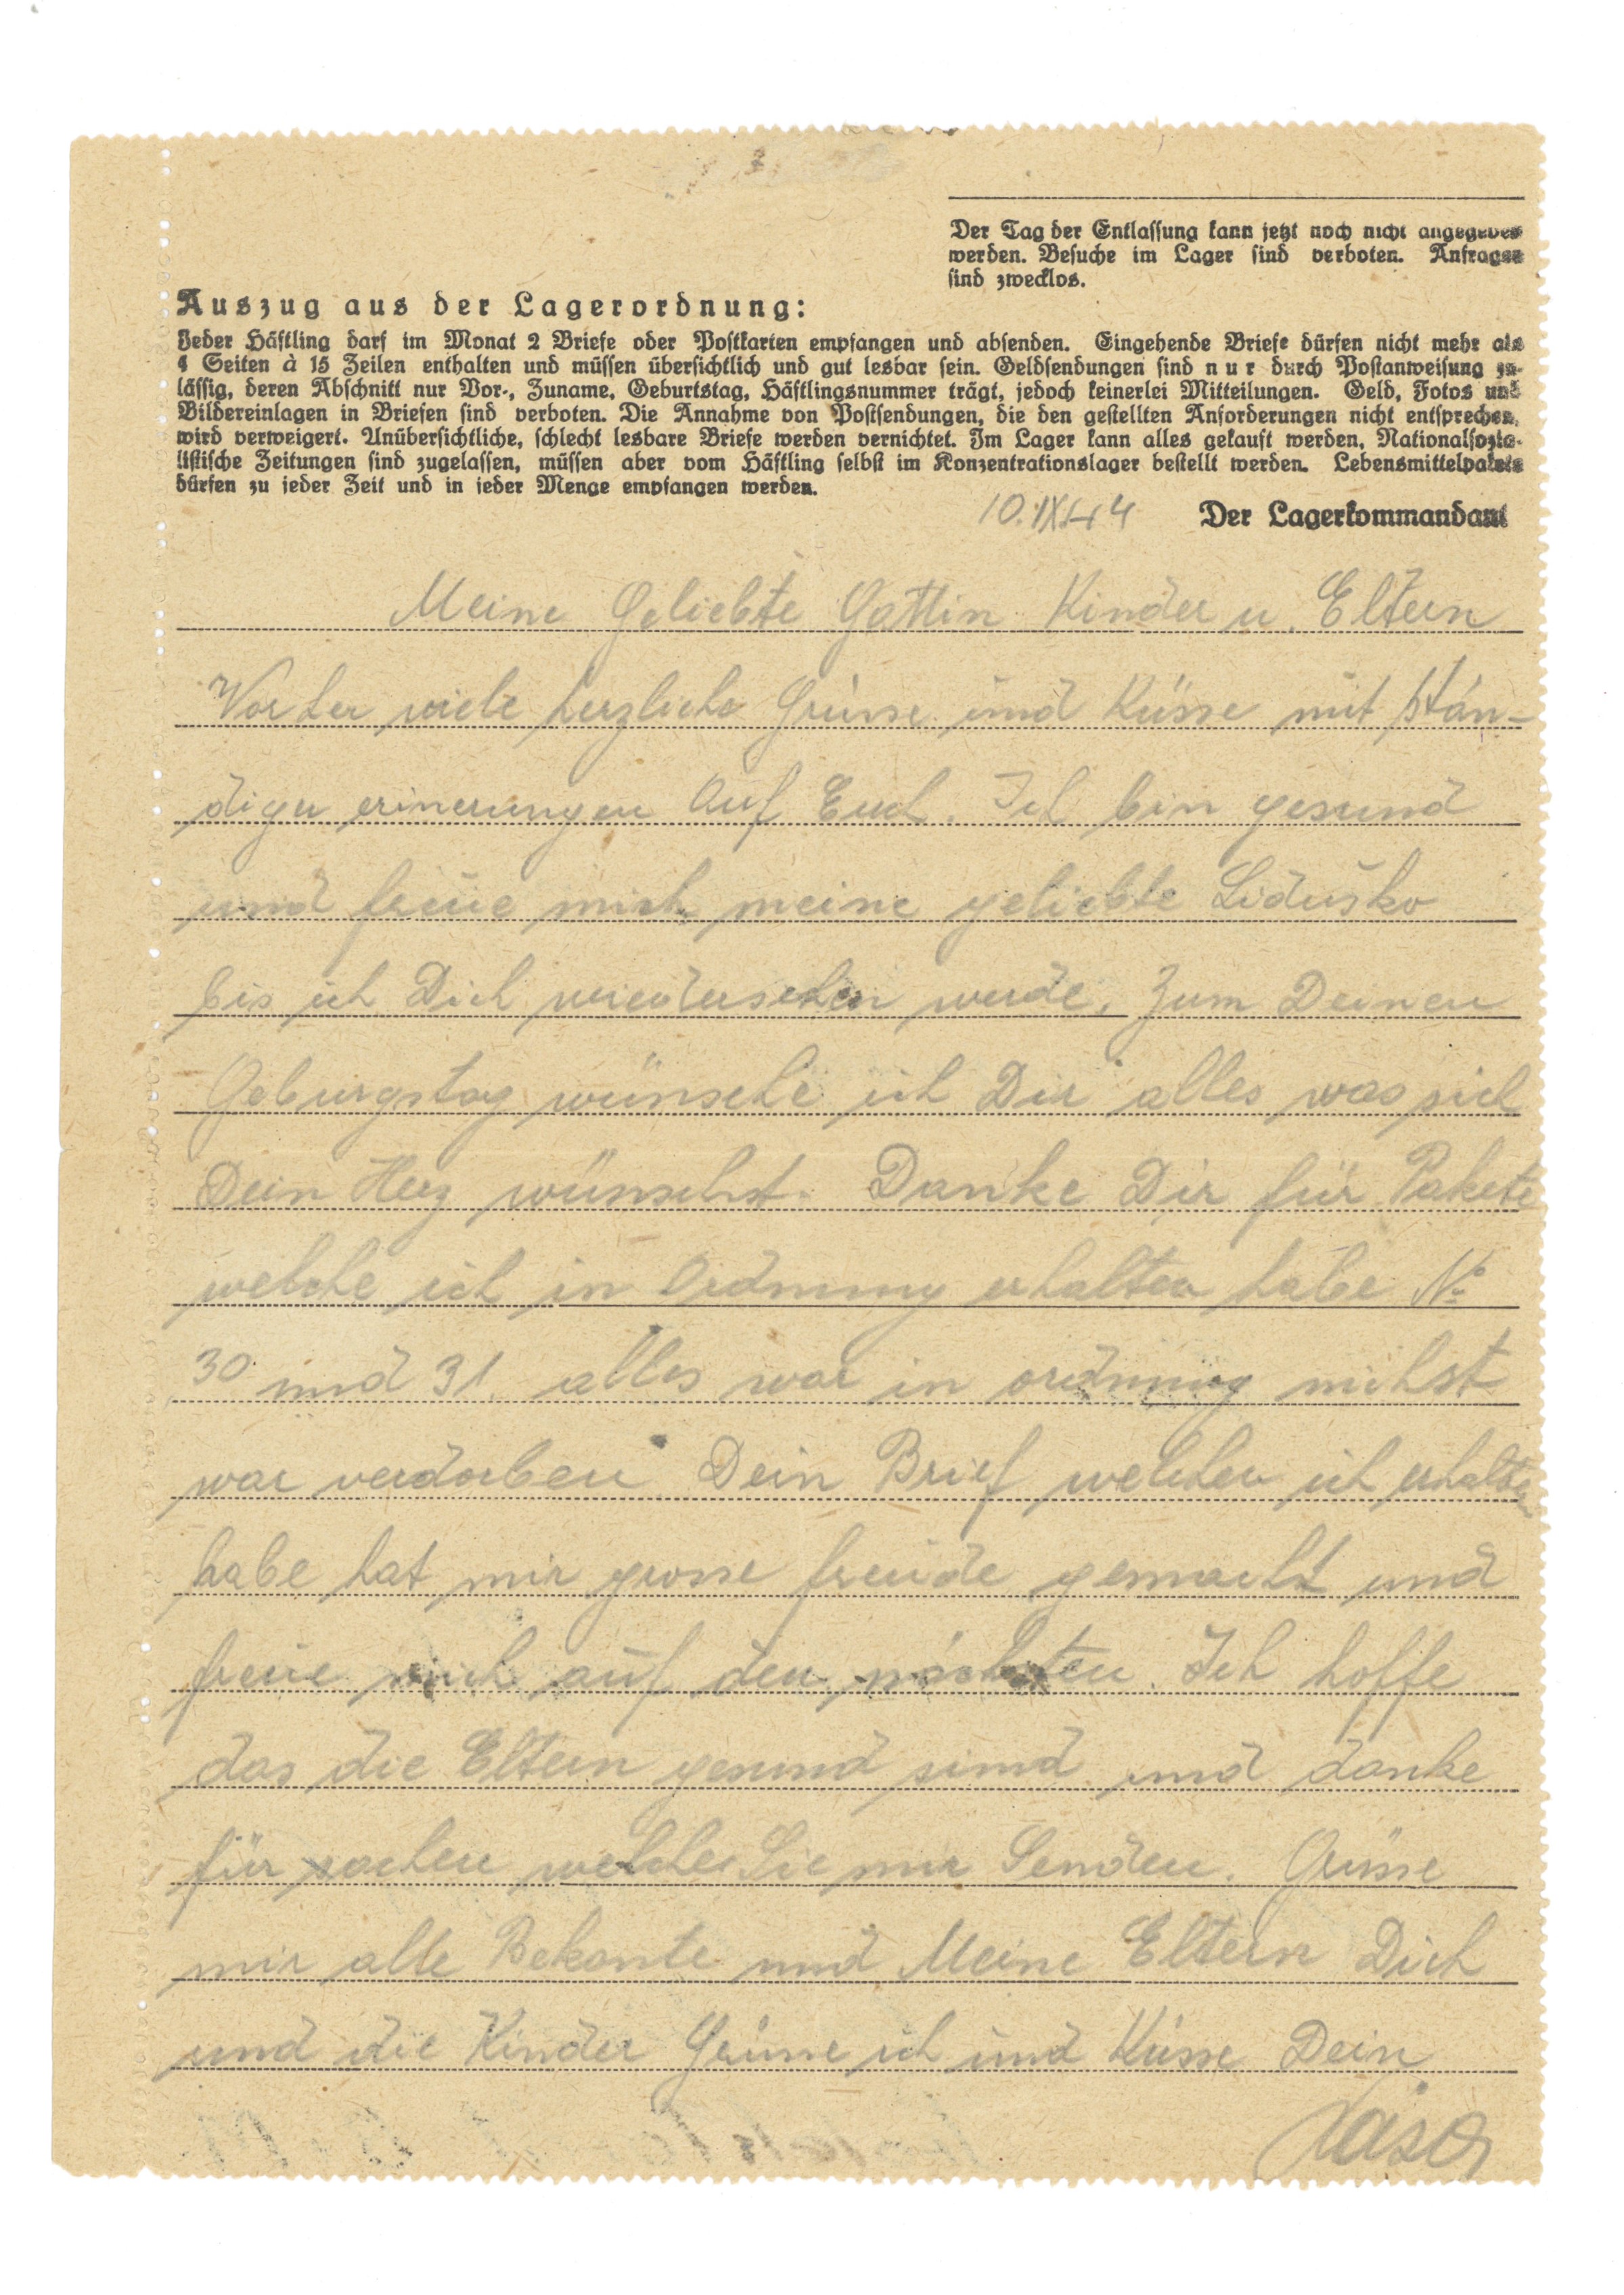 Der Tag der Entlassung kann jetzt noch nicht angegeben
werden. Besuche im Lager sind verboten. Anfragen
sind zwecklos.
Auszug aus der Lagerordnung:
Jeder Häftling darf im Monat 2 Briefe oder Postkarten empfangen und absenden. Eingehende Briefe dürfen nicht mehr als
4 Seiten à 15 Zeilen enthalten und müssen übersichtlich und gut lesbar sein. Geldsendungen sind nur durch Postanweisung zu-
lässig, deren Abschnitt nur Vor-, Zuname, Geburtstag, Häftlingsnummer trägt, jedoch keinerlei Mitteilungen. Geld, Fotos und
Bildereinlagen in Briefen sind verboten. Die Annahme von Postsendungen, die den gestellten Anforderungen nicht entsprechen,
wird verweigert. Unübersichtliche, schlecht lesbare Briefe werden vernichtet. Im Lager kann alles gekauft werden, Nationalsozia-
listische Zeitungen sind zugelassen, müssen aber vom Häftling selbst im Konzentrationslager bestellt werden. Lebensmittelpakete
dürfen zu jeder Zeit und in jeder Menge empfangen werden.
10.IX.44 Der Lagerkommandant
Meine Geliebte Gattin Kinder u. Eltern
Vorher viele herzliche Grüsse und Küsse mit stän-
digen erinerungen Auf Euch. Ich bin gesund
und freue mich meine geliebte Liduško
bis ich Dich wiedersehen werde. Zum Deinen
Geburgstag wünsche ich Dir alles was sich
Dein Herz wünschst. Danke Dir für Pakete
welche ich in Ordnung erhalten habe No
30 und 31. alles war in ordnung nichst
war verdorben. Dein Brief welchen ich erhalten
habe hat mir grosse freude gemacht und
freue mich auf den nächsten. Ich hoffe
das die Eltern gesund sind und danke
für sachen welche Sie mir Senden. Grüsse
mir alle Bekante und Meine Eltern Dich
und die Kinder Grüsse ich und Küsse Dein